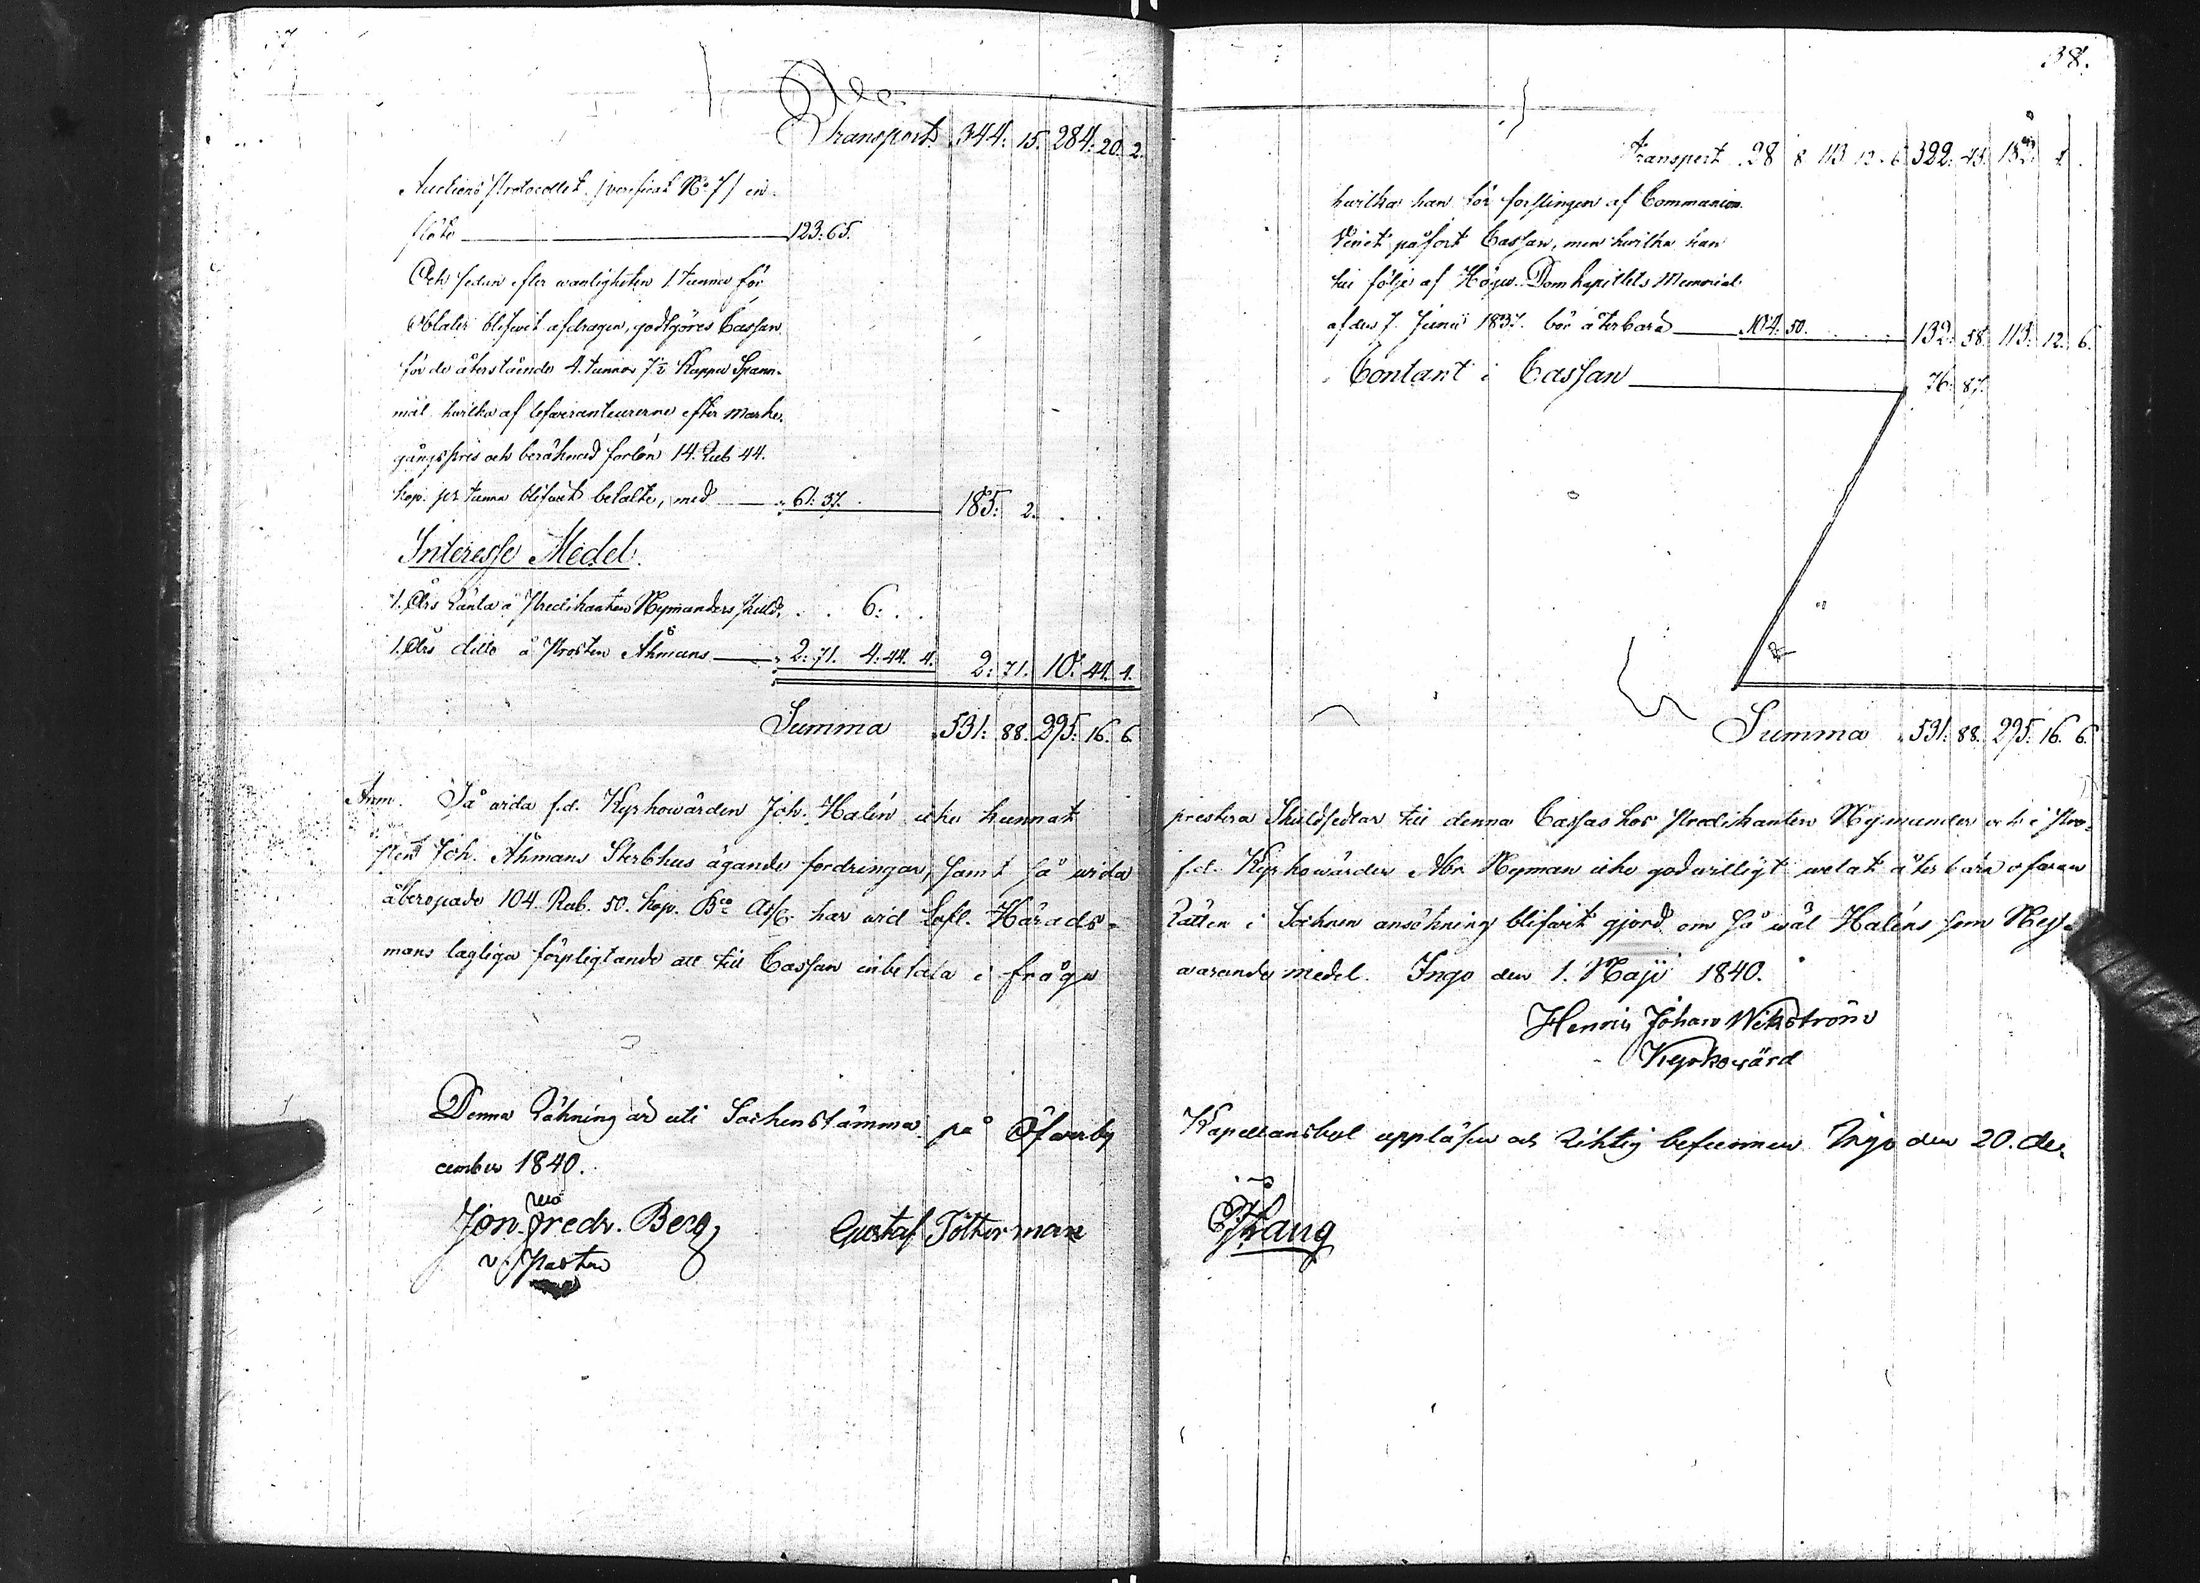 Transport. 344. 15. 284. 20. 2.
Auctions Protocollet (verificat No 7) in-
flöto 123: 65.
Och sedan efter wanligheten 1. tunna för
Oblater blifwit afdragen, godtgöres Cassan
för de återstående 4. tunnor 7½ Kappa Spann-
mål hwilka af lefweranteurerne efter marke-
gångspris och beräknad forlön 14. Rub 44.
kop. pr tunna blifwit betalte, med 61: 37. 185: 2.
Interesse Medel.
1. Års Ränta å Predikanten Nymanders skuld. 6:
1. Års ditto å Prosten Åhmans 2: 71. 4: 44. 4. 2: 71. 10: 44. 4.
Summa 531: 88. 295: 16. 6.
Anm. Så wida f.d. Kyrkowärden Joh. Halén icke hunnat
sten Joh. Åhmans Sterbhus ägande fordringar, samt så wida
åberopade 104 Rub. 50. kop. Bco Ass. har wid Lofl. Härads-
mans lagliga förpligtande att till Cassan inbetala i fråga
Denna Räkning är uti Sockenstämma på Öfwerby
cember 1840.
Jon. Fredr. Berg
v. Pastor
Gustaf Tötterman
38.
Transport 28 8 113 12. 6 322. 43. 182. 4.
hwilka han för forslingen af Communion
Vinet påfört Cassan, men hwilka han
till följe af Högw. Domkapitlets Memorial
af den 7. Junii 1837. bör återbära 104. 50. 132. 58. 113. 12. 6.
Contant i Cassan 76. 87.
Summa 531: 88. 295. 16. 6.
prestera Skuldsedlar till denna Cassas hos Predikanten Nymander och i Pro-
f.d. Kyrkowärden Abr. Nyman icke godwilligt welat återbära ofwan
Rätten i Socknen ansökning blifwit gjord om så wäl Haléns som Ny-
warande medel. Ingo den 1. Maji 1840.
Henric Johan Wikström
Kyrkowärd
Kapellansbol uppläsen och Riktig befunnen Ingo den 20. de-